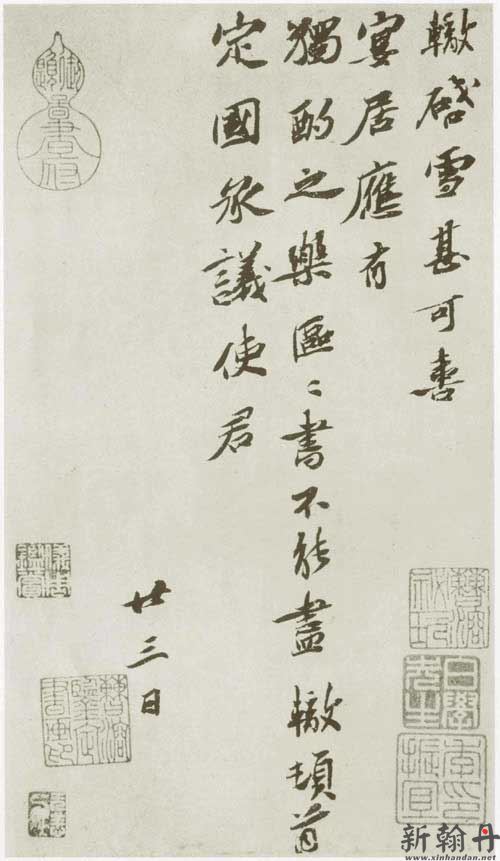 轍啓雪甚可喜
宴居應有
獨酌之樂區〻書不能盡 轍頓首
定國承議使君
廿三日
新翰丹
www.xinhandan.net